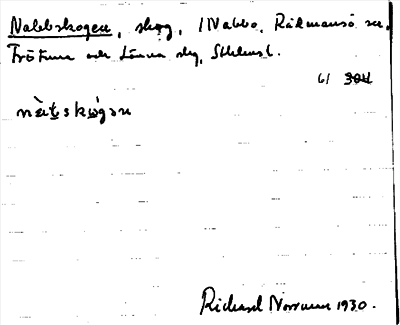 Nabboskogen, skog, i Nabbo, Rådmansö sn,
Frötuna och Länna slg, Sthlms l.
61 304
Richard Norrman 1930.